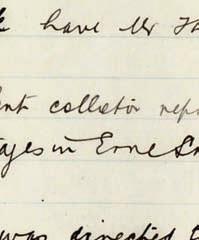 have Mr Th
ent collector repo
ages in Erne Sr
was directed t